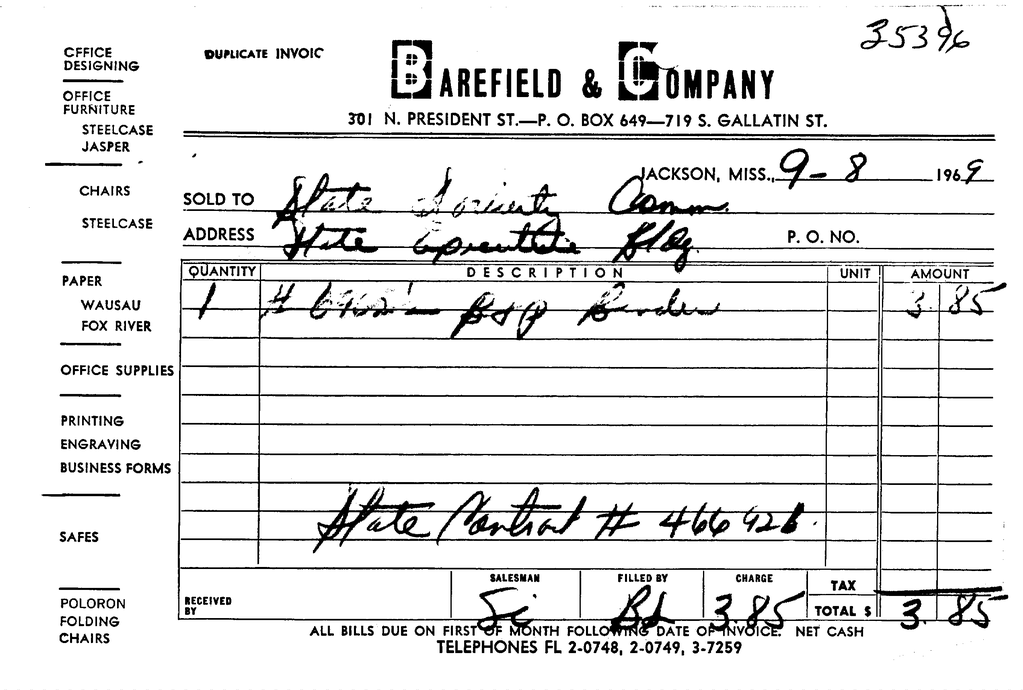 35396
DUPLICATE INVOIC
BAREFIELD & COMPANY
301 N. PRESIDENT ST.—P. O. BOX 649—719 S. GALLATIN ST.
CFFICE
DESIGNING
OFFICE
FURNITURE
STEELCASE
JASPER
CHAIRS
STEELCASE
PAPER
WAUSAU
FOX RIVER
OFFICE SUPPLIES
PRINTING
ENGRAVING
BUSINESS FORMS
SAFES
POLORON
FOLDING
CHAIRS
JACKSON, MISS., 9-8 1969
SOLD TO State Comm.
ADDRESS State Bldg. P. O. NO.
QUANTITY DESCRIPTION UNIT AMOUNT
1 # Binder 3.85
State Contract # 466 92b.
SALESMAN FILLED BY CHARGE TAX
RECEIVED
BY
Si 3.85 TOTAL $ 3.85
ALL BILLS DUE ON FIRST OF MONTH FOLLOWING DATE OF INVOICE. NET CASH
TELEPHONES FL 2-0748, 2-0749, 3-7259